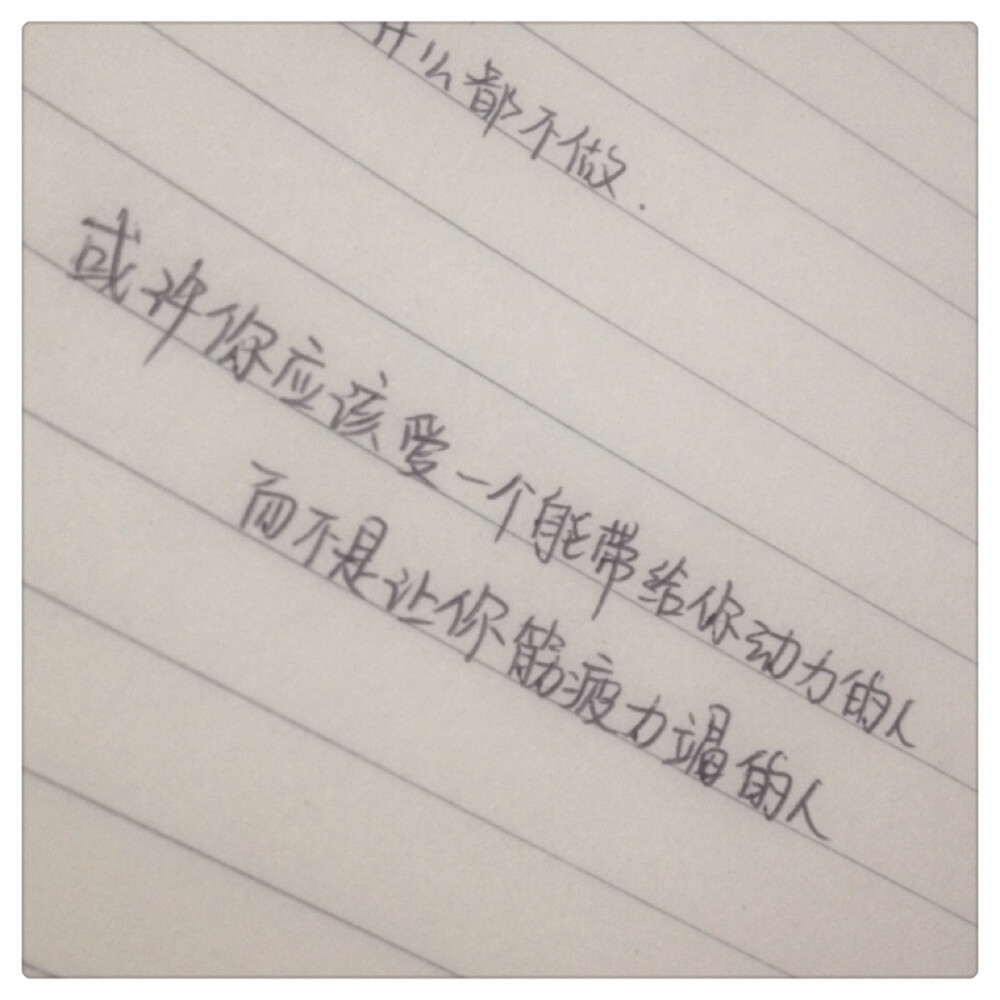 什么都不做.
或许你应该爱一个能带给你动力的人
而不是让你筋疲力竭的人